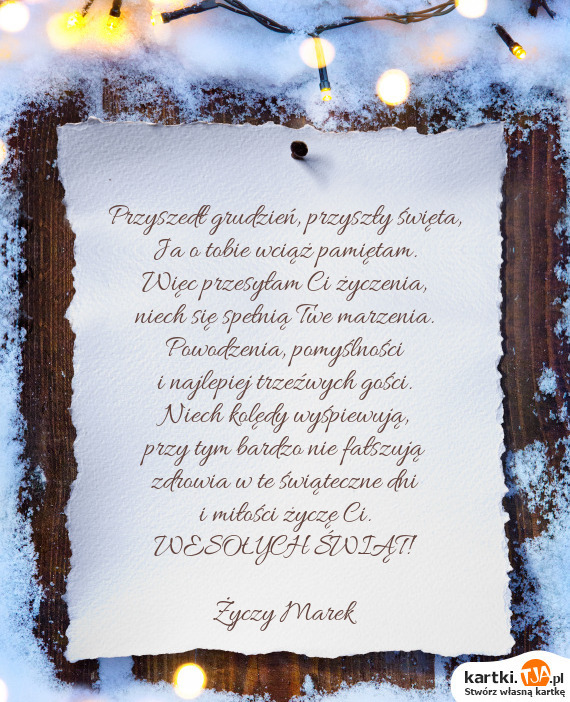 Przyszedł grudzień, przyszły święta,
Ja o tobie wciąż pamiętam.
Więc przesyłam Ci życzenia,
niech się spełnią Twe marzenia.
Powodzenia, pomyślności
i najlepiej trzeźwych gości.
Niech kolędy wyśpiewują,
przy tym bardzo nie fałszują
zdrowia w te świąteczne dni
i miłości życzę Ci.
WESOŁYCH ŚWIĄT!
Życzy Marek
kartki.TJA.pl
Stwórz własną kartkę